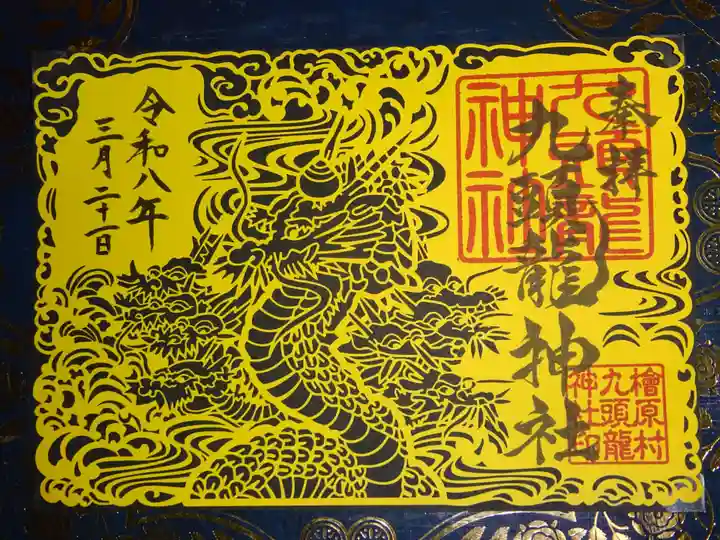 奉拝
九頭龍神社
九頭龍
神社
檜原村
九頭龍
神社印
令和八年
三月二十一日